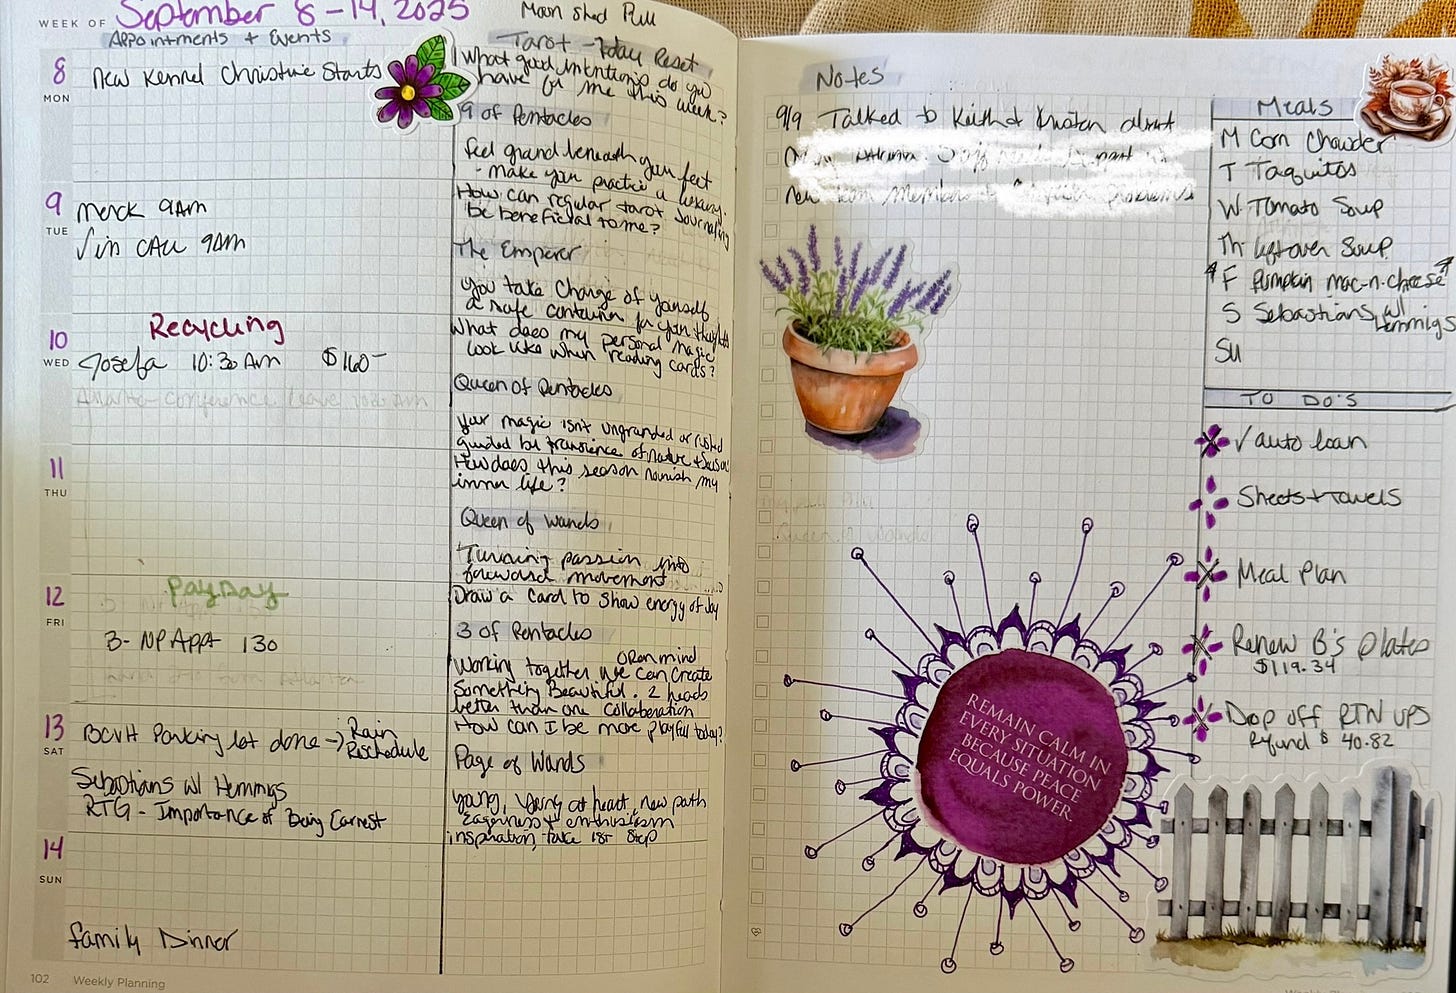 WEEK OF September 8-14, 2025
Appointments + Events
8
MON
New Kennel Christine Starts
9
TUE
Merck 9AM
√in CALL 9AM
10
WED
Recycling
Josefa 10:30 AM $160-
11
THU
12
FRI
PayDay
B- NP Appt 130
13
SAT
BCVH Parking lot done → Rain
Reschedule
Sebastians w/ Hemmigs
RTG - Importance of Being Earnest
14
SUN
family Dinner
102 Weekly Planning
Moon shed Pull
Tarot - 7day Reset
What good intentions do you
have for me this week?
9 of Pentacles
feel grand beneath your feet
- make your practice a luxury.
How can regular tarot journaling
be beneficial to me?
The Emperor
You take Charge of yourself
a safe container for your thoughts
What does my personal magic
look like when reading cards?
Queen of Pentacles
your magic isn't ungrounded or
guided by transience of nature +
How does this season nourish my
inner life?
Queen of Wands
Turning passion into
forward movement
Draw a Card to show energy of Joy
3 of Pentacles
open mind
Working together we can Create
Something Beautiful. 2 heads
better than one Collaboration
How can I be more playful today?
Page of Wands
young, young at heart, new path
Eagerness + enthusiasm
inspiration, take 1st step
Notes
9/9 Talked to Keith + Kristen about
new team members +
REMAIN CALM IN
EVERY SITUATION
BECAUSE PEACE
EQUALS POWER.
Meals
M Corn Chowder
T Taquitos
W Tomato Soup
Th leftover Soup
F Pumpkin mac-n-cheese
S Sebastians w/
Hemmigs
Su
TO DO'S
√ auto loan
Sheets + Towels
Meal Plan
Renew B's plates
$119.34
Drop off RTN UPS
Refund $ 40.82